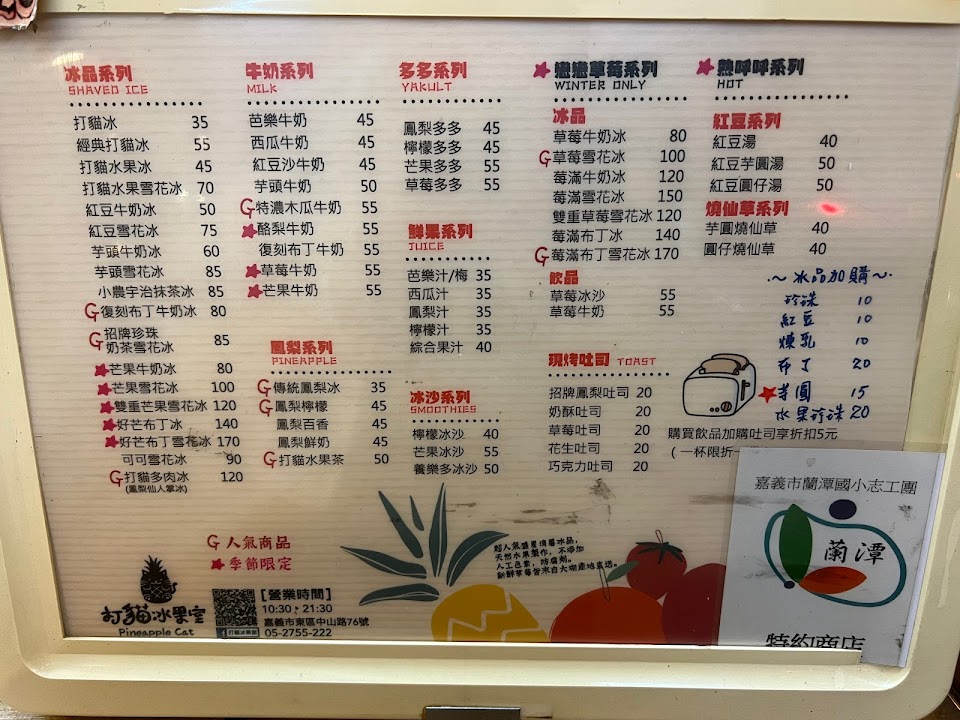 冰品系列
SHAVED ICE
打貓冰 35
經典打貓冰 55
打貓水果冰 45
打貓水果雪花冰 70
紅豆牛奶冰 50
紅豆雪花冰 75
芋頭牛奶冰 60
芋頭雪花冰 85
小農宇治抹茶冰 85
復刻布丁牛奶冰 80
招牌珍珠
奶茶雪花冰 85
芒果牛奶冰 80
芒果雪花冰 100
雙重芒果雪花冰 120
好芒布丁冰 140
好芒布丁雪花冰 170
可可雪花冰 90
打貓多肉冰 120
(鳳梨仙人掌冰)
牛奶系列
MILK
芭樂牛奶 45
西瓜牛奶 45
紅豆沙牛奶 45
芋頭牛奶 50
特濃木瓜牛奶 55
酪梨牛奶 55
復刻布丁牛奶 55
草莓牛奶 55
芒果牛奶 55
鳳梨系列
PINEAPPLE
傳統鳳梨冰 35
鳳梨檸檬 45
鳳梨百香 45
鳳梨鮮奶 45
打貓水果茶 50
多多系列
YAKULT
鳳梨多多 45
檸檬多多 45
芒果多多 55
草莓多多 55
鮮果系列
JUICE
芭樂汁/梅 35
西瓜汁 35
鳳梨汁 35
檸檬汁 35
綜合果汁 40
冰沙系列
SMOOTHIES
檸檬冰沙 40
芒果冰沙 55
養樂多冰沙 50
戀戀草莓系列
WINTER ONLY
冰品
草莓牛奶冰 80
草莓雪花冰 100
莓滿牛奶冰 120
莓滿雪花冰 150
雙重草莓雪花冰 120
莓滿布丁冰 140
莓滿布丁雪花冰 170
飲品
草莓冰沙 55
草莓牛奶 55
現烤吐司 TOAST
招牌鳳梨吐司 20
奶酥吐司 20
草莓吐司 20
花生吐司 20
巧克力吐司 20
熱呼呼系列
HOT
紅豆系列
紅豆湯 40
紅豆芋圓湯 50
紅豆圓仔湯 50
燒仙草系列
芋圓燒仙草 40
圓仔燒仙草 40
~冰品加購~
珍珠 10
紅豆 10
煉乳 10
布丁 20
芋圓 15
水果珍珠 20
購買飲品加購吐司享折扣5元
(一杯限折一
人氣商品
季節限定
打貓冰果室
Pineapple Cat
[營業時間]
10:30 - 21:30
嘉義市東區中山路76號
打貓冰果室 05-2755-222
超人氣盛夏消暑冰品,
天然水果製作,不添加
人工色素,防腐劑。
新鮮草莓皆來自大湖產地直送。
嘉義市蘭潭國小志工團
蘭潭
特約商店